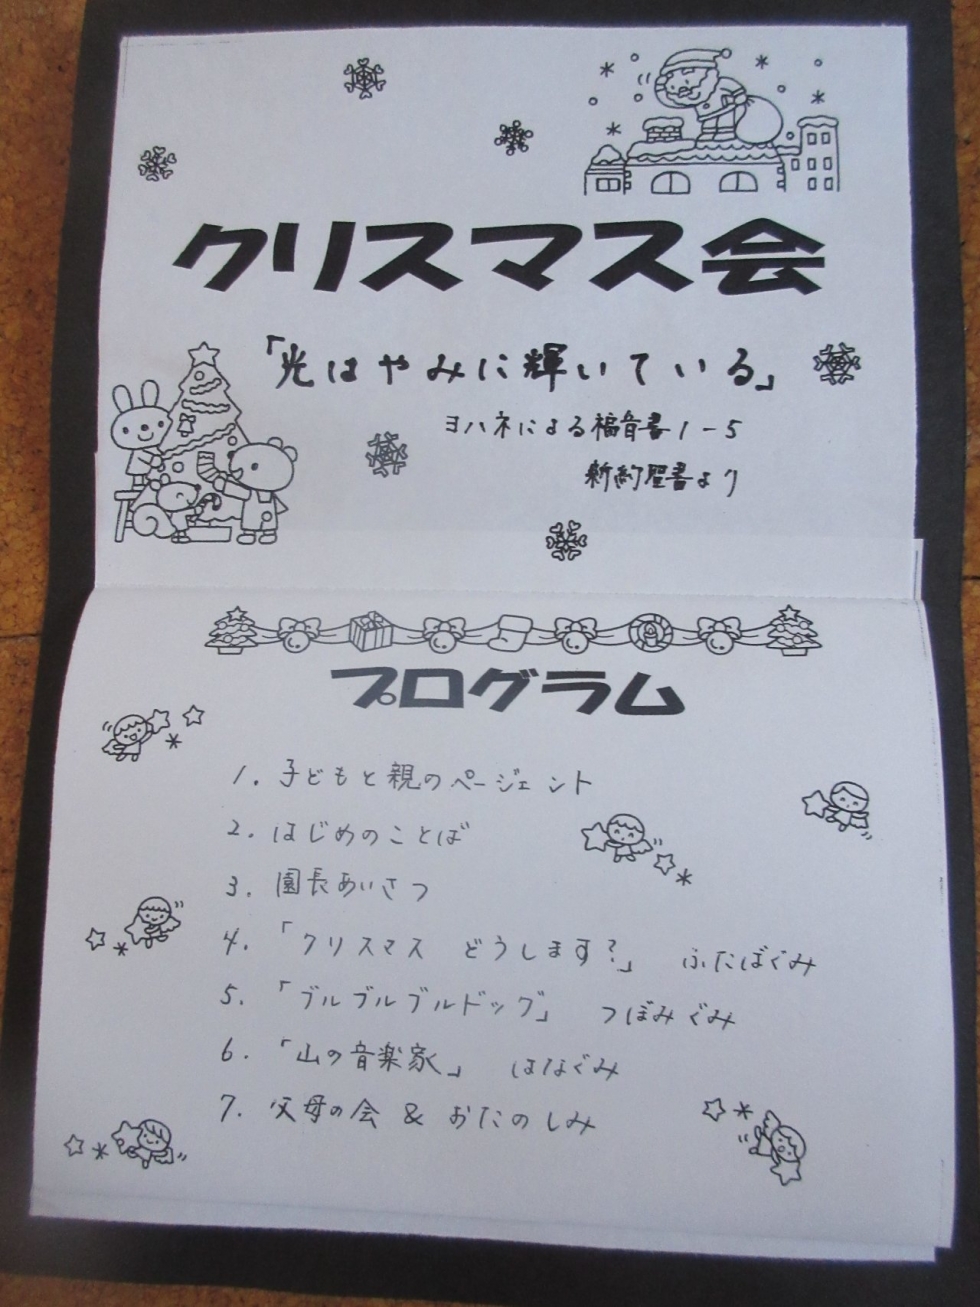 クリスマス会
「光はやみに輝いている」
ヨハネによる福音書1-5
新約聖書より
プログラム
1. 子どもと親のページェント
2. はじめのことば
3. 園長あいさつ
4. 「クリスマス どうします?」 ふたばぐみ
5. 「ブルブルブルドッグ」 つぼみぐみ
6. 「山の音楽家」 はなぐみ
7. 父母の会 & おたのしみ